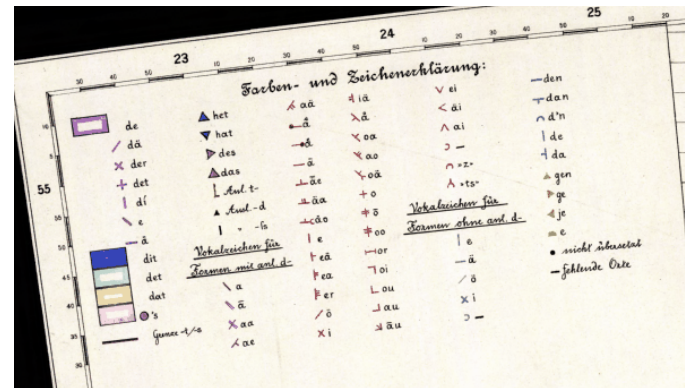 23
24
25
Farben- und Zeichenerklärung:
de
dä
der
det
dí
e
ä
dit
det
dat
's
Grenze -t/-s
het
hat
des
das
Anl. t-
Anl. -d
" -ls
Vokalzeichen für
Formen mit anl. d-
a
ä
aa
ae
aä
å
å
ä
äe
äa
äo
e
eä
ea
er
ö
i
iä
å
oa
ao
oä
o
ō
oo
or
oi
ou
au
äu
ei
äi
ai
–
»z»
»ts»
Vokalzeichen für
Formen ohne anl. d-
e
ä
ö
i
–
den
dan
d'n
de
da
gen
ge
je
e
nicht übersetzt
fehlende Orte
55